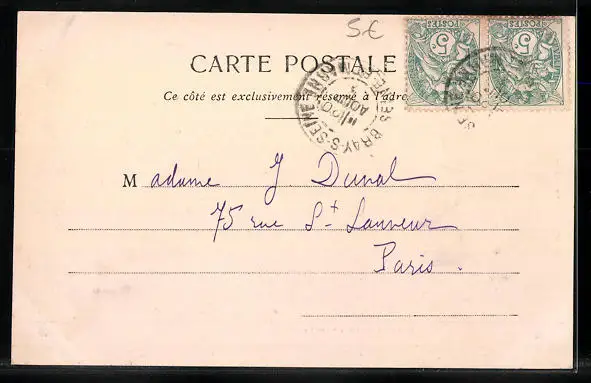 5€
CARTE POSTALE
Ce côté est exclusivement réservé à l'adre
BRAY-S-SEINE
SEINE-ET-MARNE
AOUT
5 5
Madame J. Duval
75 rue St Sauveur
Paris.